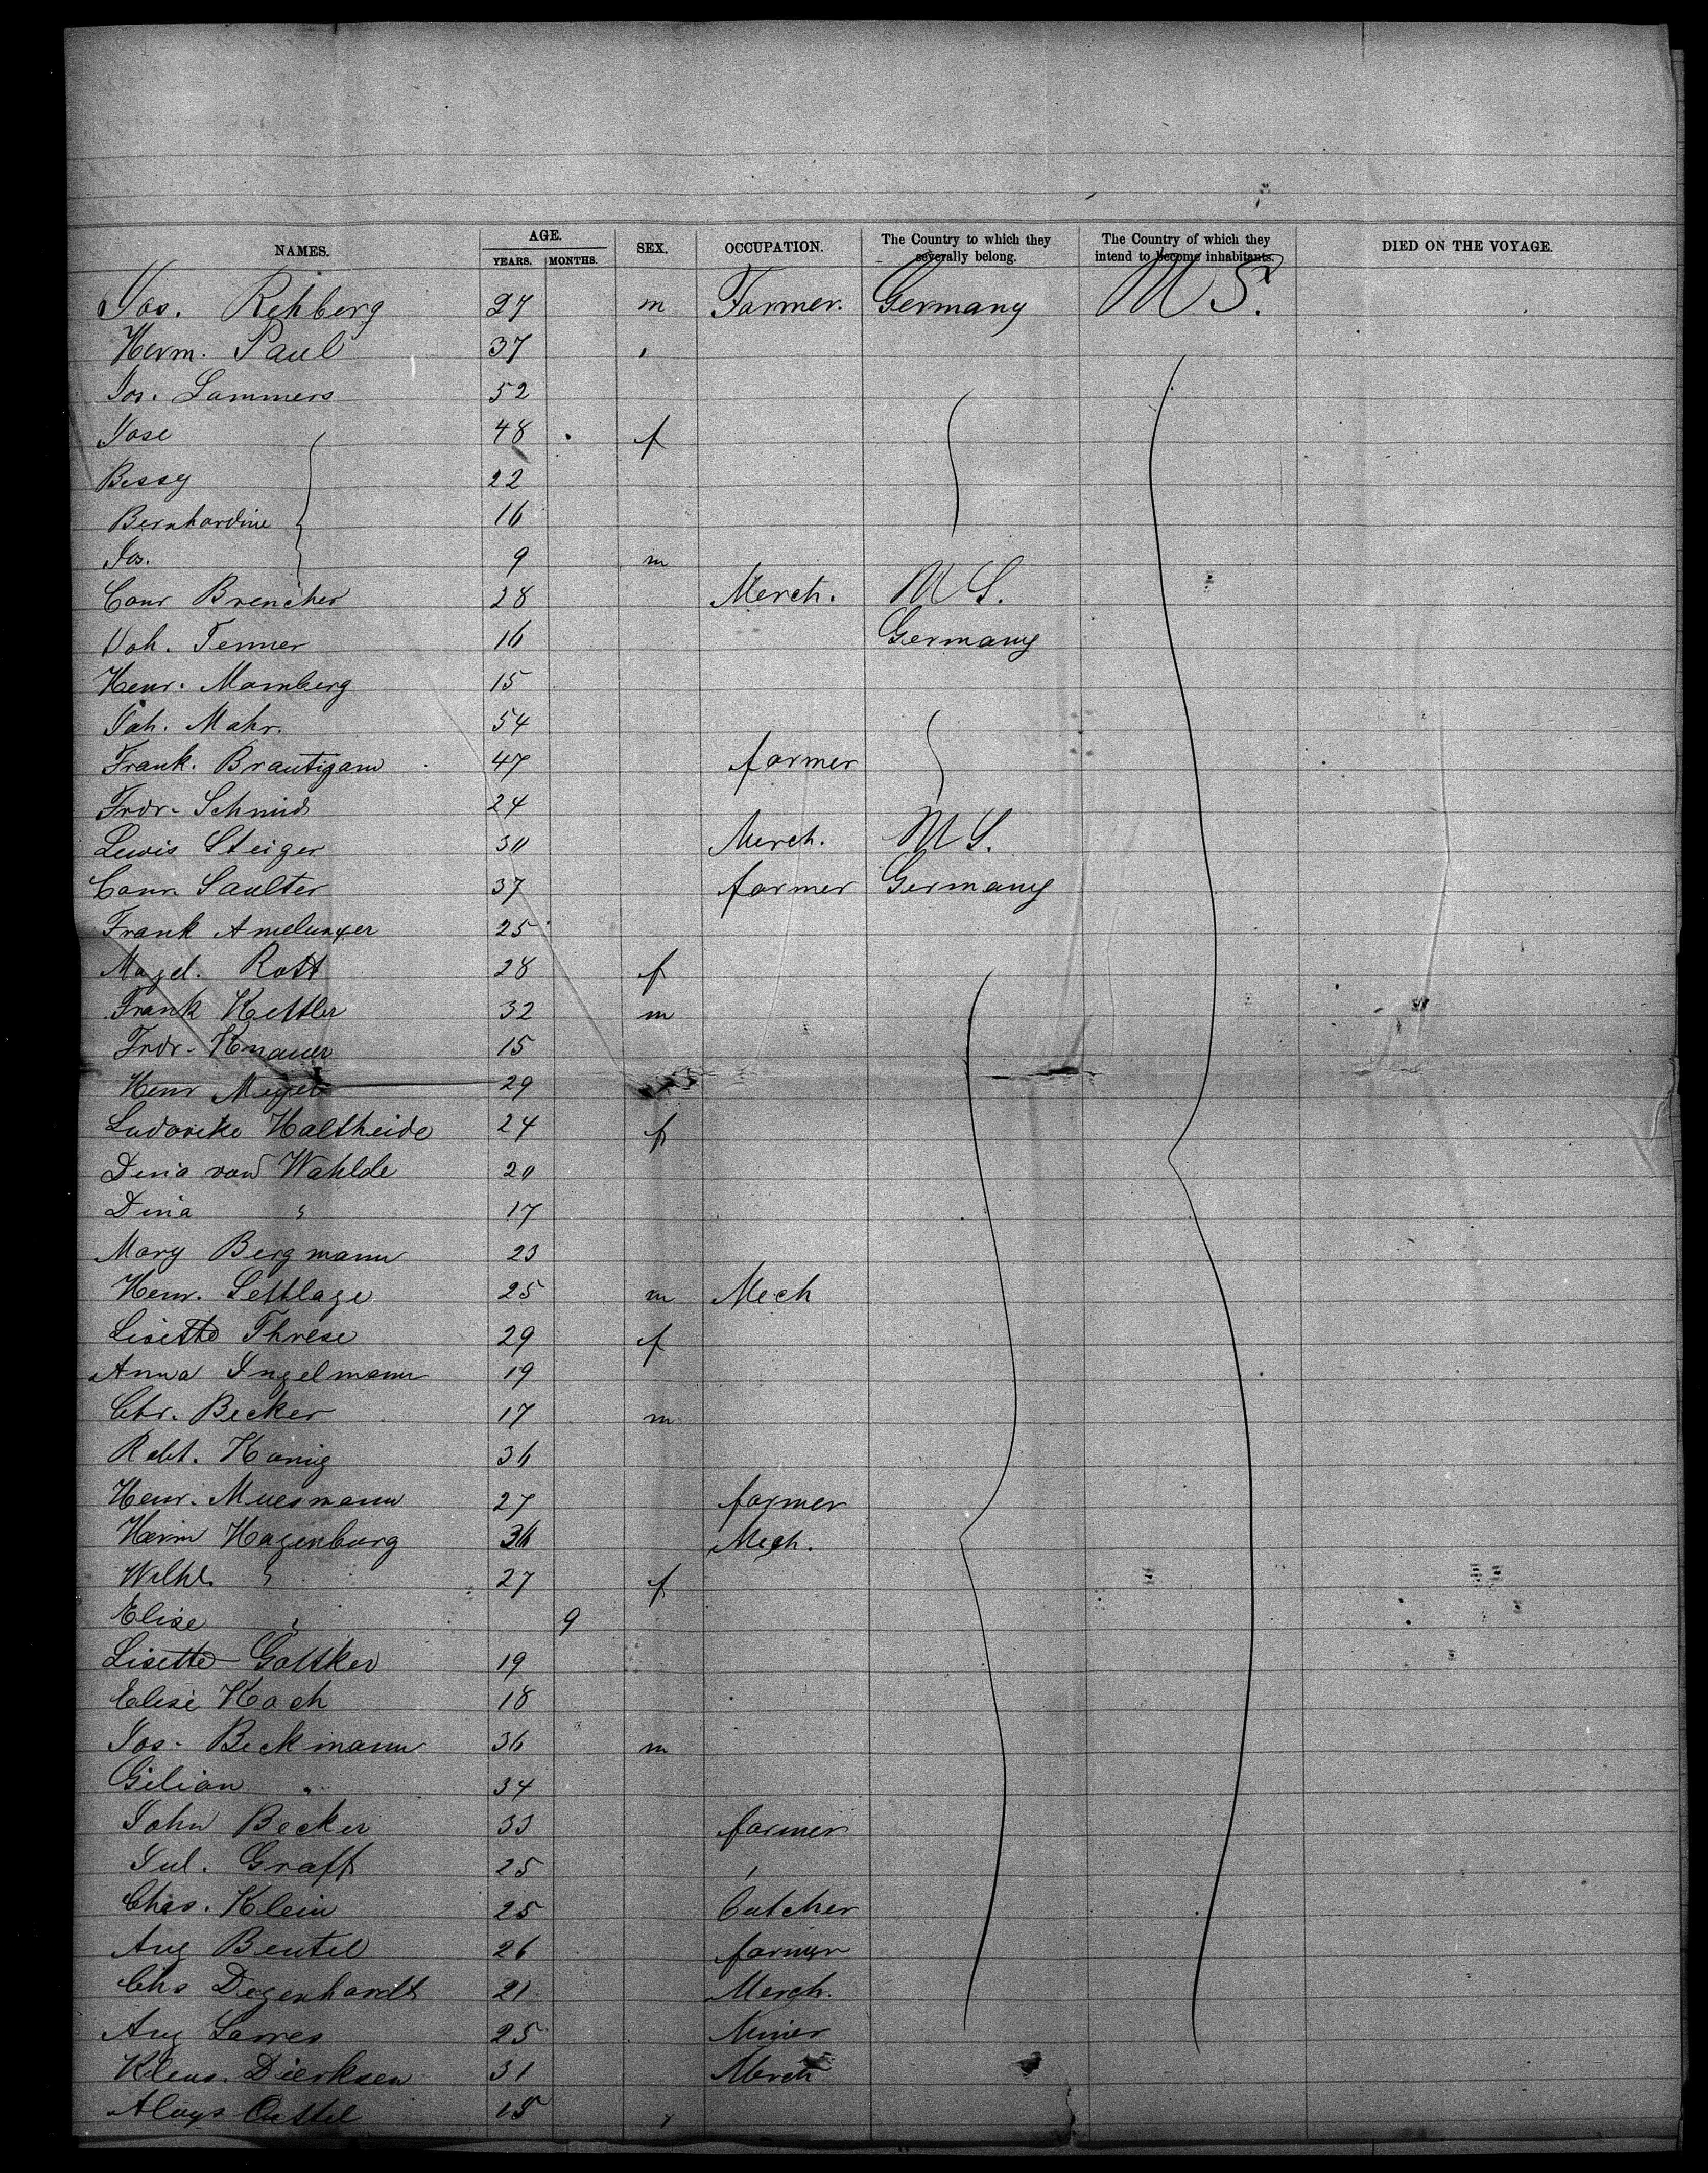 NAMES. AGE. YEARS. MONTHS. SEX. OCCUPATION. The Country to which they severally belong. The Country of which they intend to become inhabitants. DIED ON THE VOYAGE.
Jos. Rehberg 27 m Farmer. Germany U S.
Herm. Paul 37 "
Jos. Lammers 52
Jose 48 f
Bessy 22
Bernhardine 16
Jos. 9 m
Conr Brencher 28 Merch. U S.
Joh. Tenner 16 Germany
Henr. Momberg 15
Joh. Mahr. 54
Frank. Brautigam 47 farmer
Frdr. Schmid 24
Lewis Steiger 30 Merch. U S.
Conr. Saulter 37 farmer Germany
Frank Amelunxer 25
Magd. Rott 28 f
Frank Kettler 32 m
Frdr. Knauer 15
Henr Meyer 29
Holtheide 24 f
Dena von Wahlde 20
Dina " 17
Mary Bergmann 23
Henr. Settlage 25 m Mech
Lisette Threse 29 f
Anna Ingelmann 19
Chr. Becker 17 m
Robt. Konig 36
Henr. Muesmann 27 farmer
Herm Hagenburg 36 Mech.
Wilhe. " 27 f
Elise " 9
Lisette Gottker 19
Elise Koch 18
Jos. Beckmann 36 m
Gilian " 34
John Becker 33 farmer
Jul. Graff 25 "
Chas. Klein 25 butcher
Aug Beutel 26 farmer
Chs Degenhardt 21 Merch.
Aug 25 Miner
Klens. Dierksen 31 Merch
Aloys 15 "